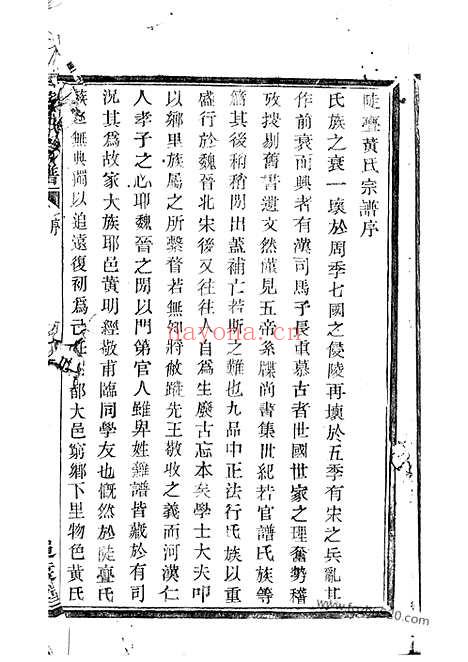 陡亹黃氏宗譜序
氏族之衰一壞於周季七國之侵陵再壞於五季有宋之兵亂其
作前衰而興者有漢司馬子長重慕古者世國世家之理奮勢稽
攷搜剔舊書遺文然僅見五帝系牒尚書集世紀若官譜氏族等
篇其後稍稍間出蓋補亡若斯之難也九品中正法行氏族以重
盛行於魏晉北宋後又往往人自為生廢古忘本矣學士大夫叩
以鄉里族屬之所繫瞀若無知將敵蹤先王敬收之義而河漢仁
人孝子之心耶魏晉之閒以門第官人雖卑姓雜譜皆藏於有司
況其為故家大族耶邑黃明經敬甫臨同學友也慨然於陡亹氏
族無典獨以追遠復初為己任 都大邑窮鄉下里物色黃氏
序
nayona.cn